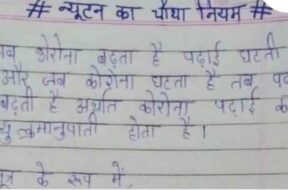 # न्यूटन का चौथा नियम #
कोरोना बढ़ता है पढ़ाई घटती
और जब कोरोना घटता है तब
बढ़ती है अर्थात कोरोना पढ़ाई
होता है।
के रूप में